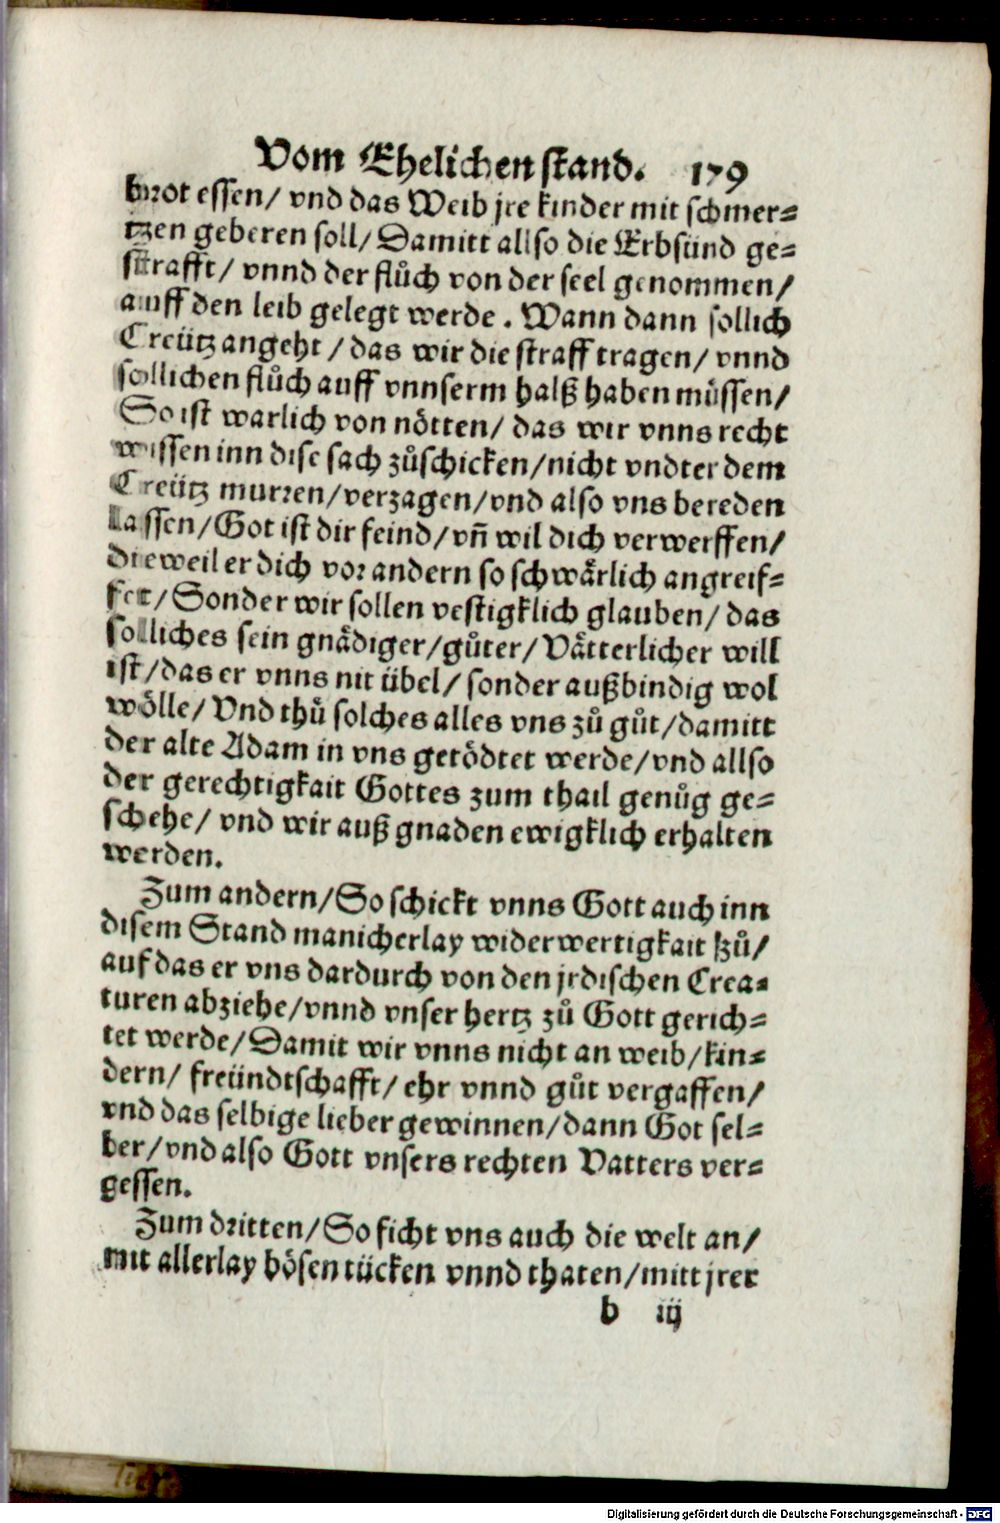 Vom Ehelichen stand. 179
brot essen/ vnd das Weib jre kinder mit schmer⸗
tzen geberen soll/ Damitt allso die Erbsünd ge⸗
strafft/ vnnd der flůch von der seel genommen/
auff den leib gelegt werde. Wann dann sollich
Creütz angeht/ das wir die straff tragen/ vnnd
sollichen flůch auff vnnserm halß haben müssen/
So ist warlich von nötten/ das wir vnns recht
wissen inn dise sach zůschicken/ nicht vndter dem
Creütz murren/ verzagen/ vnd also vns bereden
lassen/ Got ist dir feind/ vñ wil dich verwerffen/
dieweil er dich vor andern so schwärlich angreif⸗
fet/ Sonder wir sollen vestigklich glauben/ das
solliches sein gnädiger/ gůter/ Vätterlicher will
ist/ das er vnns nit übel/ sonder außbindig wol
wölle/ Vnd thů solches alles vns zů gůt/ damitt
der alte Adam in vns getödtet werde/ vnd allso
der gerechtigkait Gottes zum thail genůg ge⸗
schehe/ vnd wir auß gnaden ewigklich erhalten
werden.
Zum andern/ So schickt vnns Gott auch inn
disem Stand manicherlay widerwertigkait zů/
auf das er vns dardurch von den jrdischen Crea⸗
turen abziehe/ vnnd vnser hertz zů Gott gerich⸗
tet werde/ Damit wir vnns nicht an weib/ kin⸗
dern/ freündtschafft/ ehr vnnd gůt vergaffen/
vnd das selbige lieber gewinnen/ dann Got sel⸗
ber/ vnd also Gott vnsers rechten Vatters ver⸗
gessen.
Zum dritten/ So ficht vns auch die welt an/
mit allerlay bösen tücken vnnd thaten/ mitt jrer
b iij
Digitalisierung gefördert durch die Deutsche Forschungsgemeinschaft - DFG